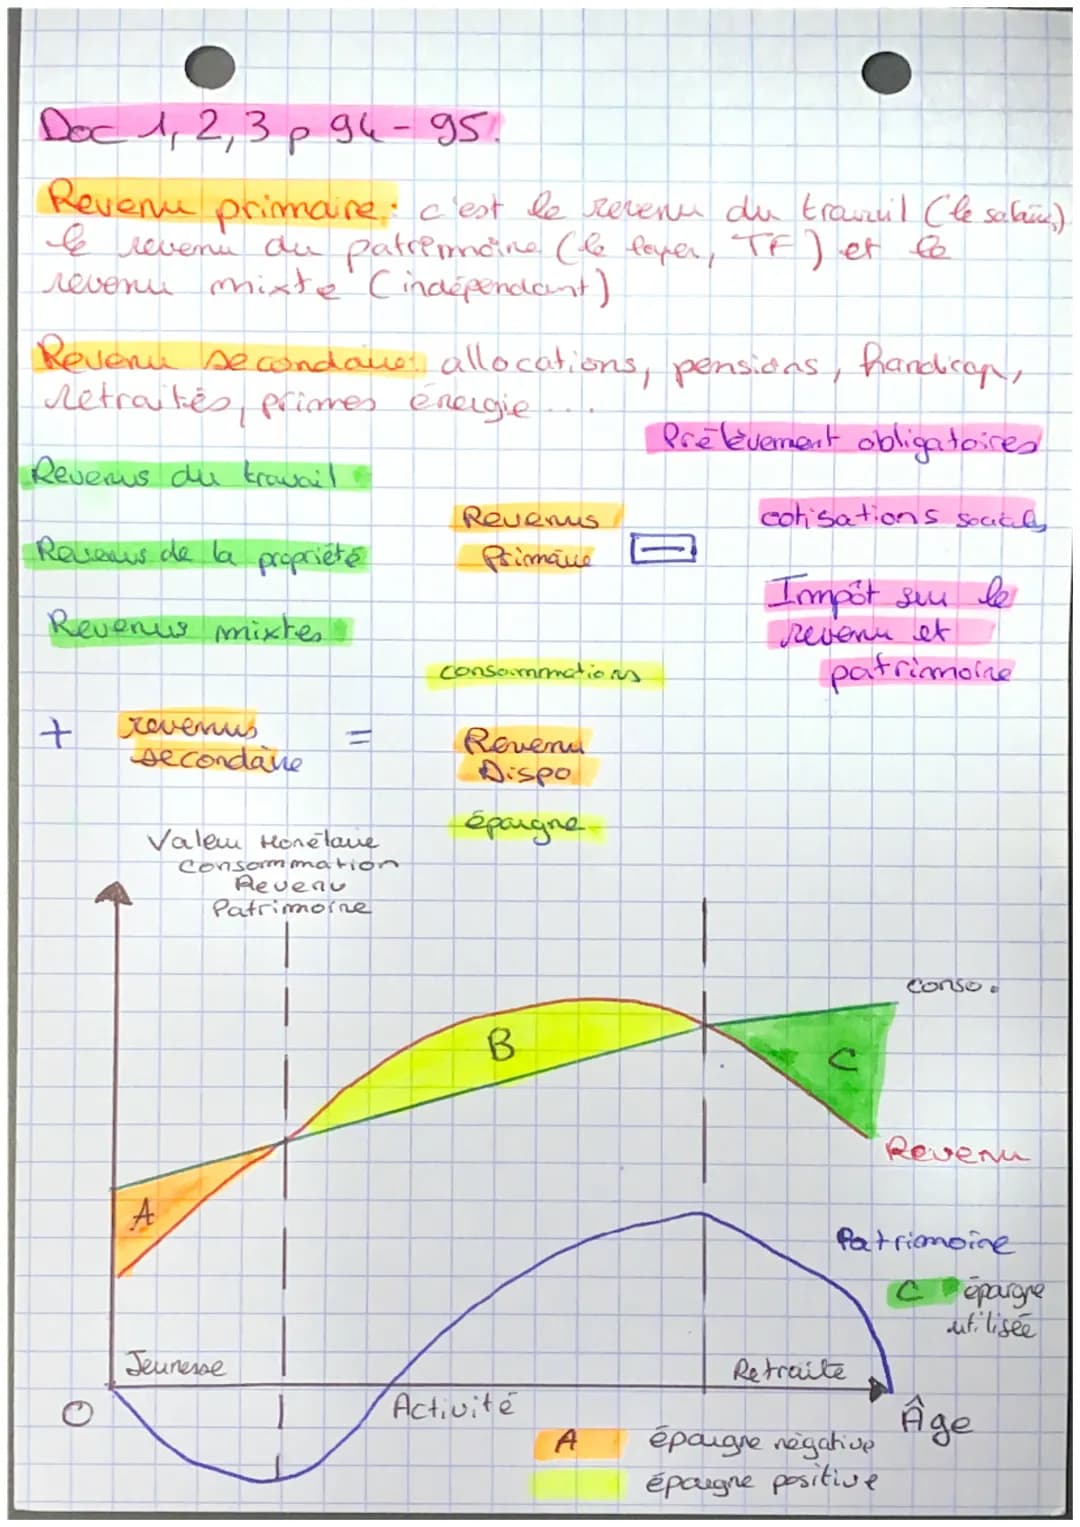 Doc 1, 2, 3 p 94 - 95.
Revenu primaire : c'est le revenu du travail (le salaire,)
le revenu du patrimoine (le loyer, TF) et le
revenu mixte (indépendant)
Revenu secondaire: allocations, pensions, handicap,
retraités, primes énergie ...
Prélèvement obligatoires
Revenus du travail
Revenus
Primaire
cotisations sociales
Revenus de la propriété
Impôt sur le
revenu et
patrimoine
Revenus mixtes
consommations
+ revenus
secondaire
=
Revenu
Dispo
épargne
Valeur Monétaire
Consommation
Revenu
Patrimoine
conso.
B
C
Revenu
A
Patrimoine
C épargne
utilisée
Jeunesse
Retraite
O
Activité
Âge
A épargne négative
épargne positive